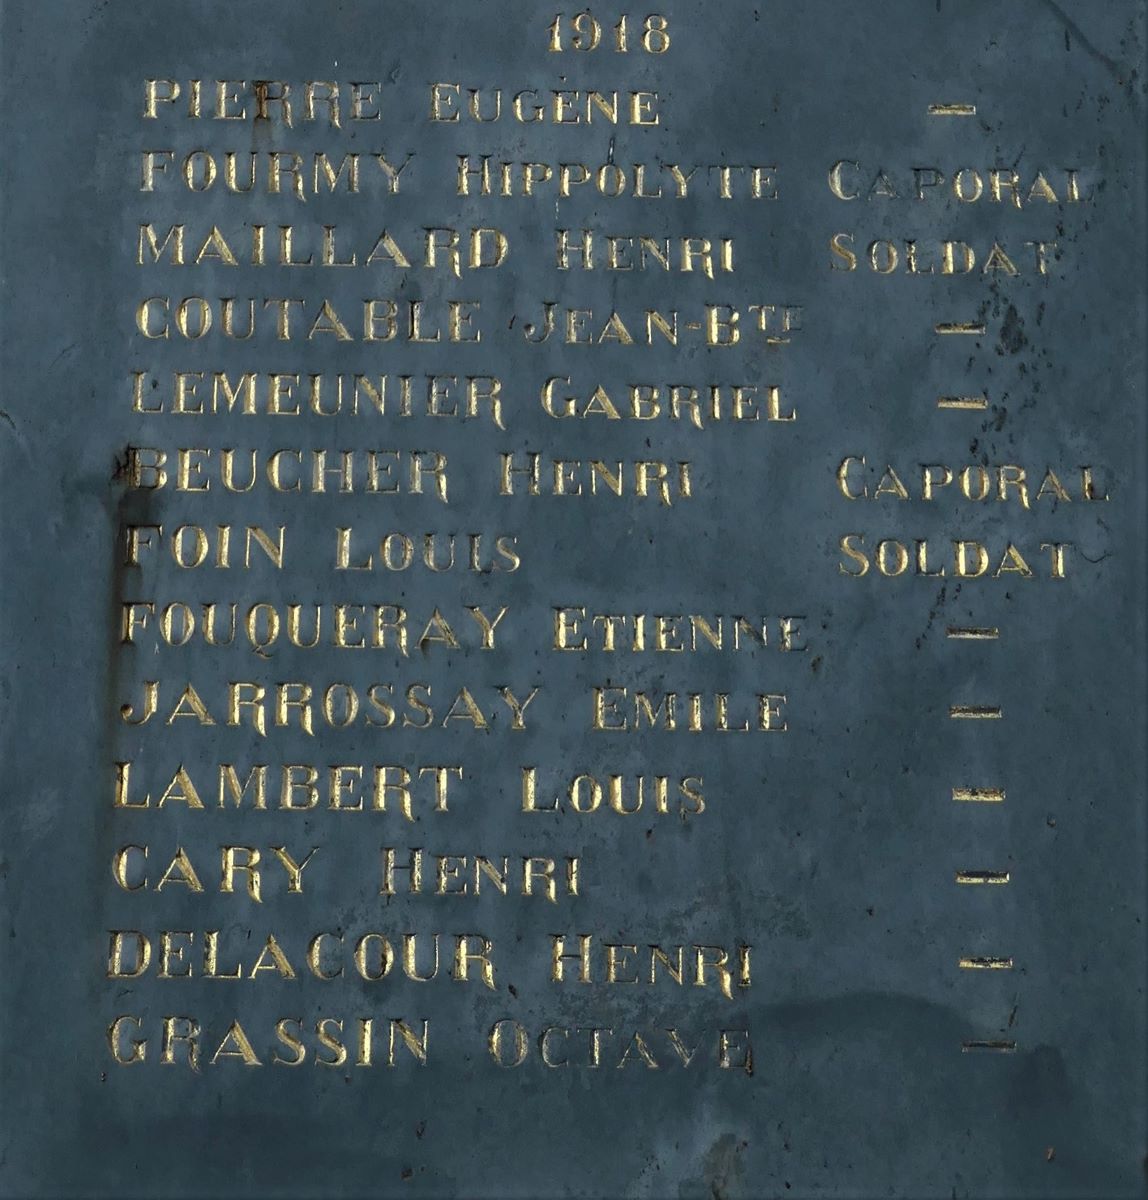 1918
PIERRE EUGÈNE —
FOURMY HIPPOLYTE CAPORAL
MAILLARD HENRI SOLDAT
COUTABLE JEAN-BTE —
LEMEUNIER GABRIEL —
BEUCHER HENRI CAPORAL
FOIN LOUIS SOLDAT
FOUQUERAY ETIENNE —
JARROSSAY EMILE —
LAMBERT LOUIS —
CARY HENRI —
DELACOUR HENRI —
GRASSIN OCTAVE —